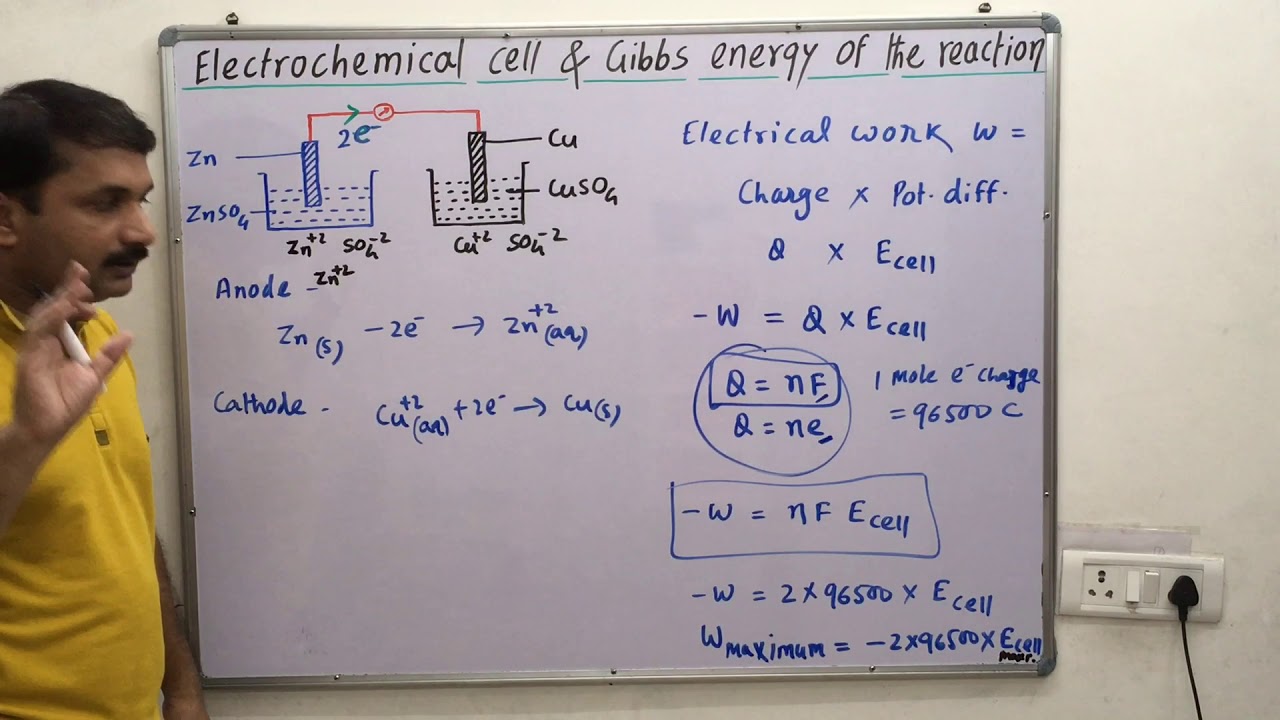 Electrochemical cell & Gibbs energy of the reaction
2e⁻
Zn
ZnSO₄
Cu
CuSO₄
Zn⁺² SO₄⁻²
Cu⁺² SO₄⁻²
Anode - Zn⁺²
Zn(s) - 2e⁻ → Zn⁺²(aq)
Cathode - Cu⁺²(aq) + 2e⁻ → Cu(s)
Electrical work W =
Charge × Pot. diff.
Q × Ecell
-W = Q × Ecell
Q = nF
Q = ne
1 mole e⁻ charge
= 96500 C
-W = nF Ecell
-W = 2×96500 × Ecell
Wmaximum = -2×96500×Ecell
max.